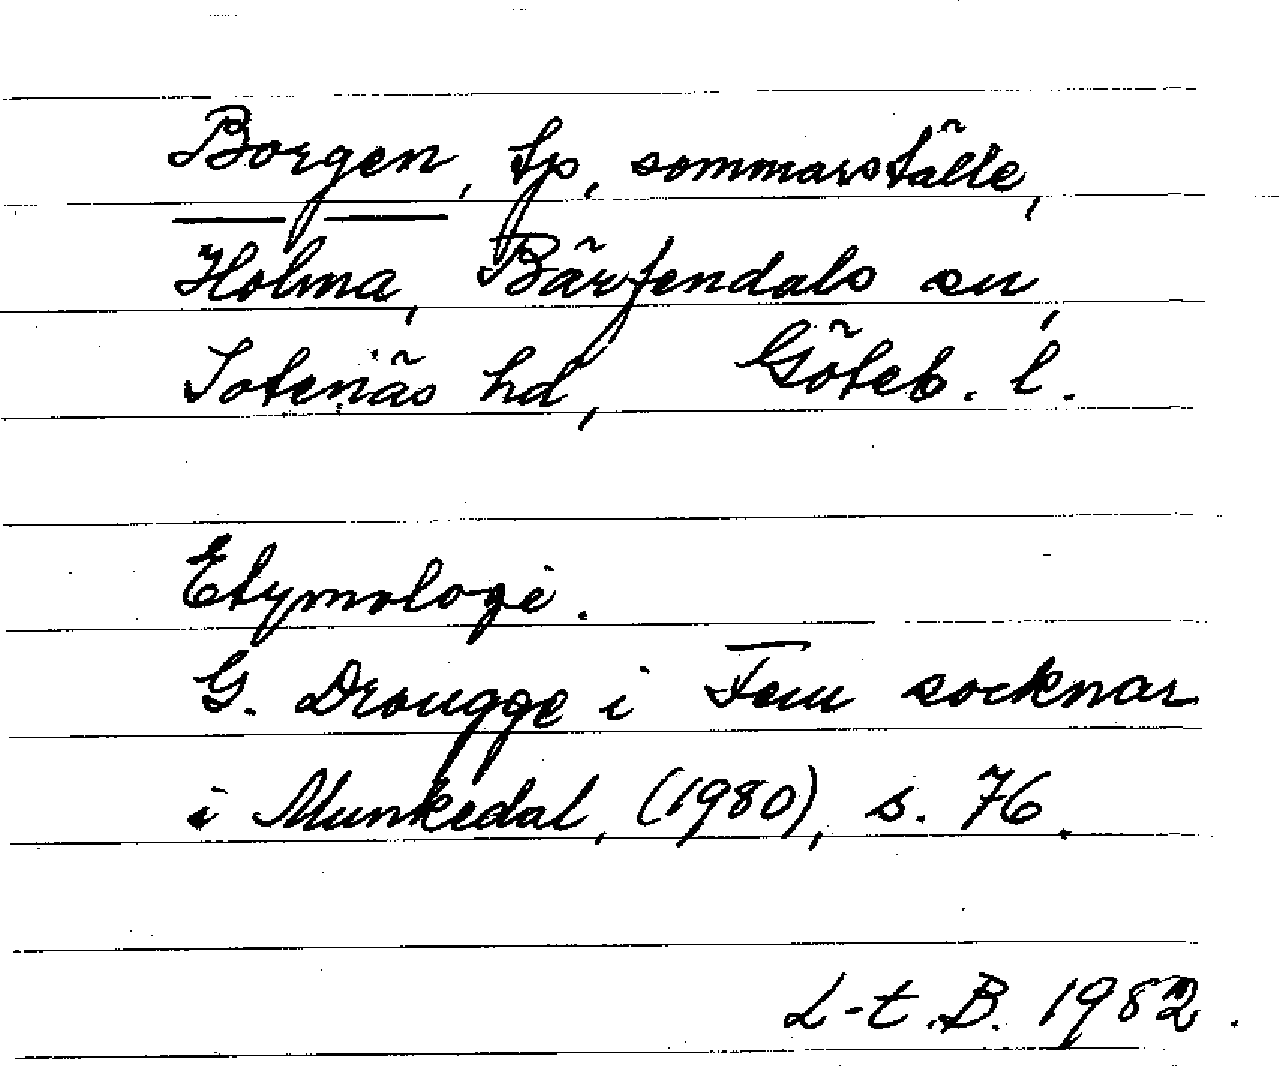 Borgen, tp, sommarställe,
Holma, Bärfendals sn,
Sotenäs hd, Göteb. l.
Etymologi.
G. Drougge i Fem socknar
i Munkedal, (1980), s. 76.
L-t. B. 1982.